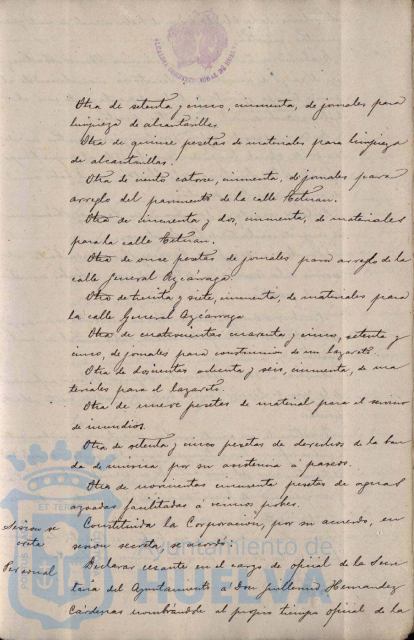 Otra de setenta y cinco, cincuenta, de jornales para
limpieza de alcantarillas.
Otra de quince pesetas de materiales para limpieza
de alcantarillas.
Otra de ciento catorce, cincuenta, de jornales para
arreglo del pavimento de la calle Tetuan.
Otra de cincuenta y dos, cincuenta, de materiales
para la calle Tetuan.
Otra de once pesetas de jornales para arreglo de la
calle General Azcárraga.
Otra de treinta y siete, cincuenta, de materiales para
la calle General Azcárraga
Otra de cuatrocientos cuarenta y cinco, setenta y
cinco, de jornales para construccion de un lazareto.
Otra de doscientas ochenta y seis, cincuenta, de ma
teriales para el lazareto.
Otra de nueve pesetas de material para el servicio
de incendios.
Otra de setenta y cinco pesetas de derechos de la ban
da de música por su asistencia á paseos.
Otra de novecientas cincuenta pesetas de aguas
facilitadas á vecinos pobres.
Sesion se
creta
Constituida la Corporacion, por su acuerdo, en
sesion secreta, se acordó:
Personal
Declarar cesante en el cargo de oficial de la Secre
taria del Ayuntamiento á Don Guillermo Hernandez
Cárdenas nombrándole al propio tiempo oficial de la
Ayuntamiento de
HUELVA